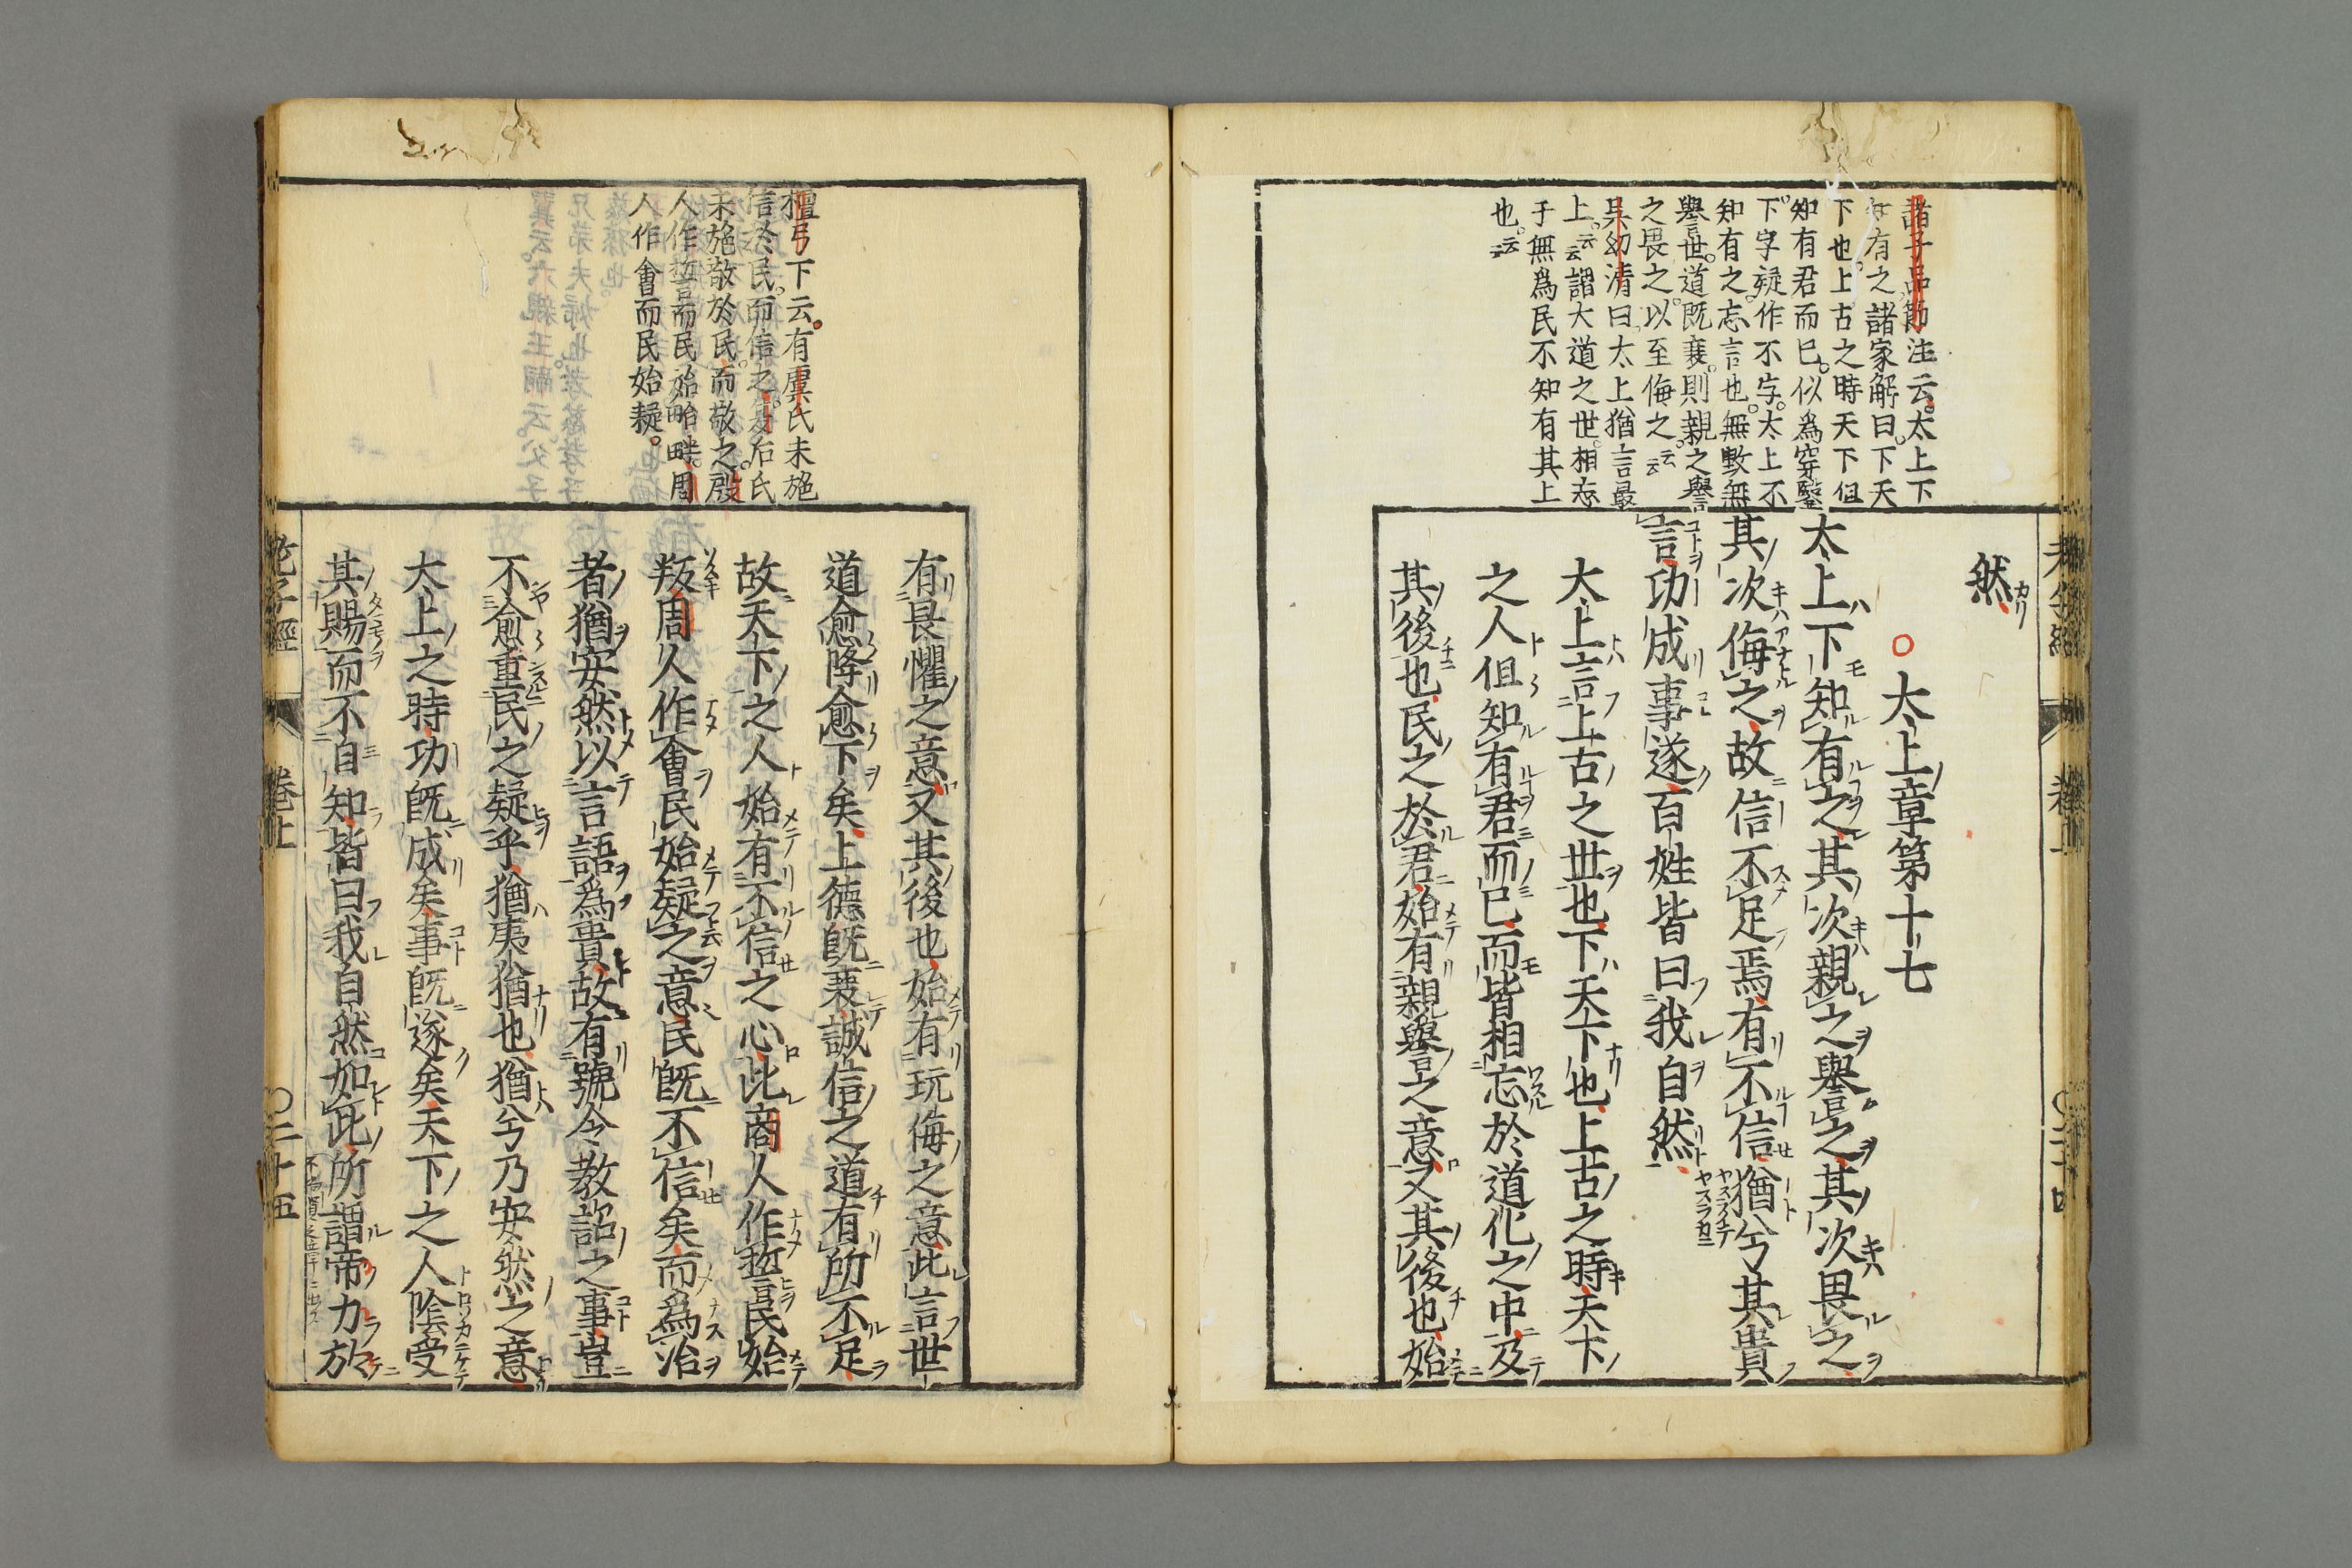 諸子品節注云太上下
知有之諸家解曰下天
下也上古之時天下但
知有君而已似爲穿鑿
下字疑作不字太上不
知有之忘言也無斁無
譽世道既衰則親之譽
之畏之以至侮之云云
吳幼清曰太上猶言最
上云云謂大道之世相忘
于無爲民不知有其上
也云云
然カリ
大上章第十七
太上下知有之其次親之譽之其次畏之
其次侮之故信不足焉有不信猶兮其貴
言功成事遂百姓皆曰我自然
大上言上古之世也下天下也上古之時天下
之人但知有君而已而皆相忘於道化之中及
其後也民之於君始有親譽之意又其後也始
檀弓下云有虞氏未施
信於民而信之夏后氏
未施敬於民而敬之殷
人作誓而民始畔周
人作會而民始疑
有畏懼之意又其後也始有玩侮之意此言世
道愈降愈下矣上德既衰誠信之道有所不足
故天下之人始有不信之心此商人作誓民始
叛周人作會民始疑之意民既不信矣而爲治
者猶安然以言語爲貴故有號令教詔之事豈
不愈重民之疑乎猶夷猶也猶兮乃安然之意
大上之時功既成矣事既遂矣天下之人陰受
其賜而不自知皆曰我自然如此所謂帝力於
老子經 卷上 〇二十五